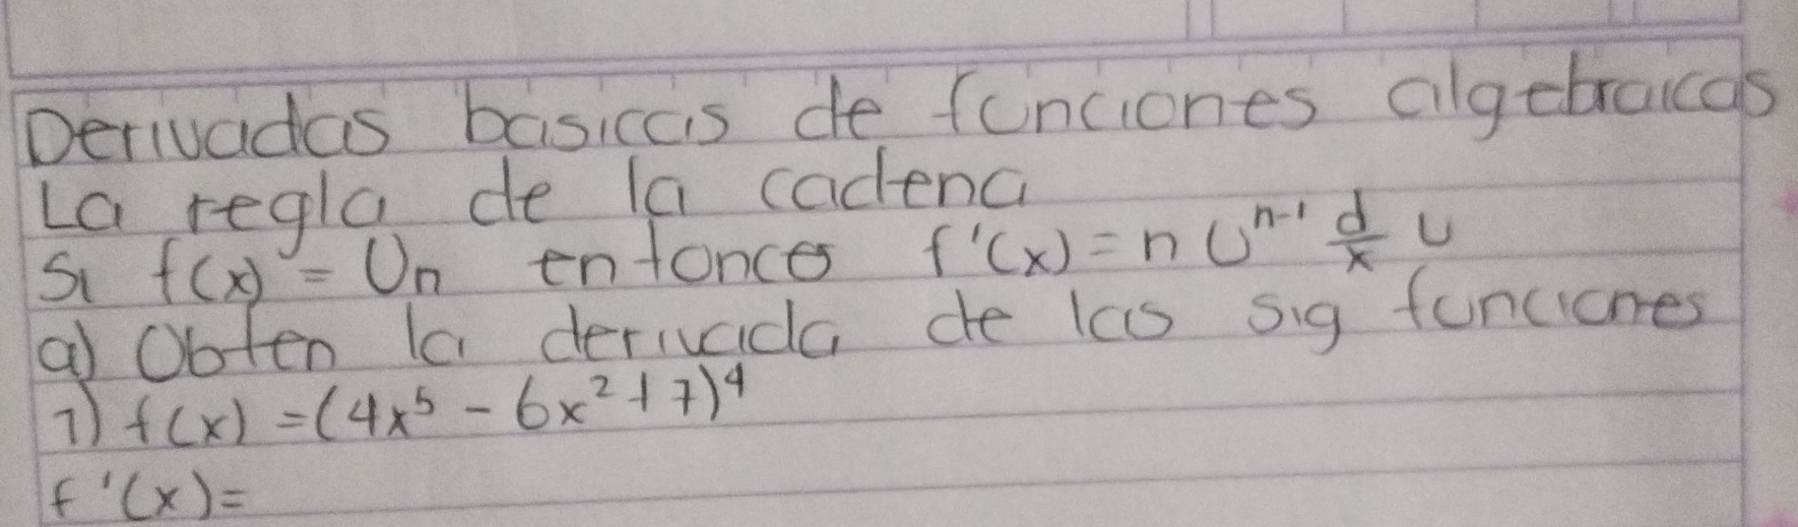 Derivadas basicas de funciones algebraicas
La regla de la cadena
Si f(x) = Un entonces f'(x) = n U^{n-1} \frac{d}{x} U
a) Obten la derivada de las sig funciones
1) f(x) = (4x^5 - 6x^2 + 7)^4
f'(x) =